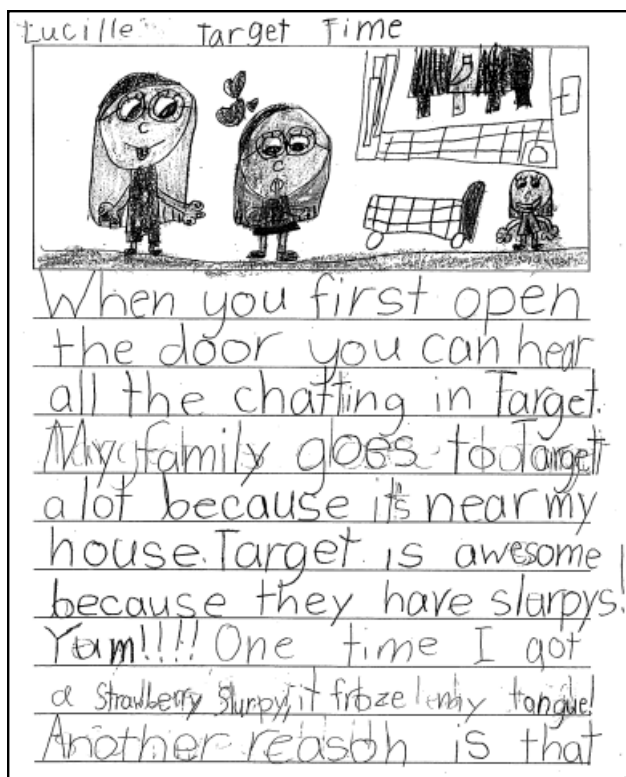 Lucille Target Time
When you first open
the door you can hear
all the chatting in Target.
My family goes to Target
a lot because it's near my
house. Target is awesome
because they have slurpys!
Yum!!!! One time I got
a strawberry slurpy, it froze my tongue!
Another reason is that